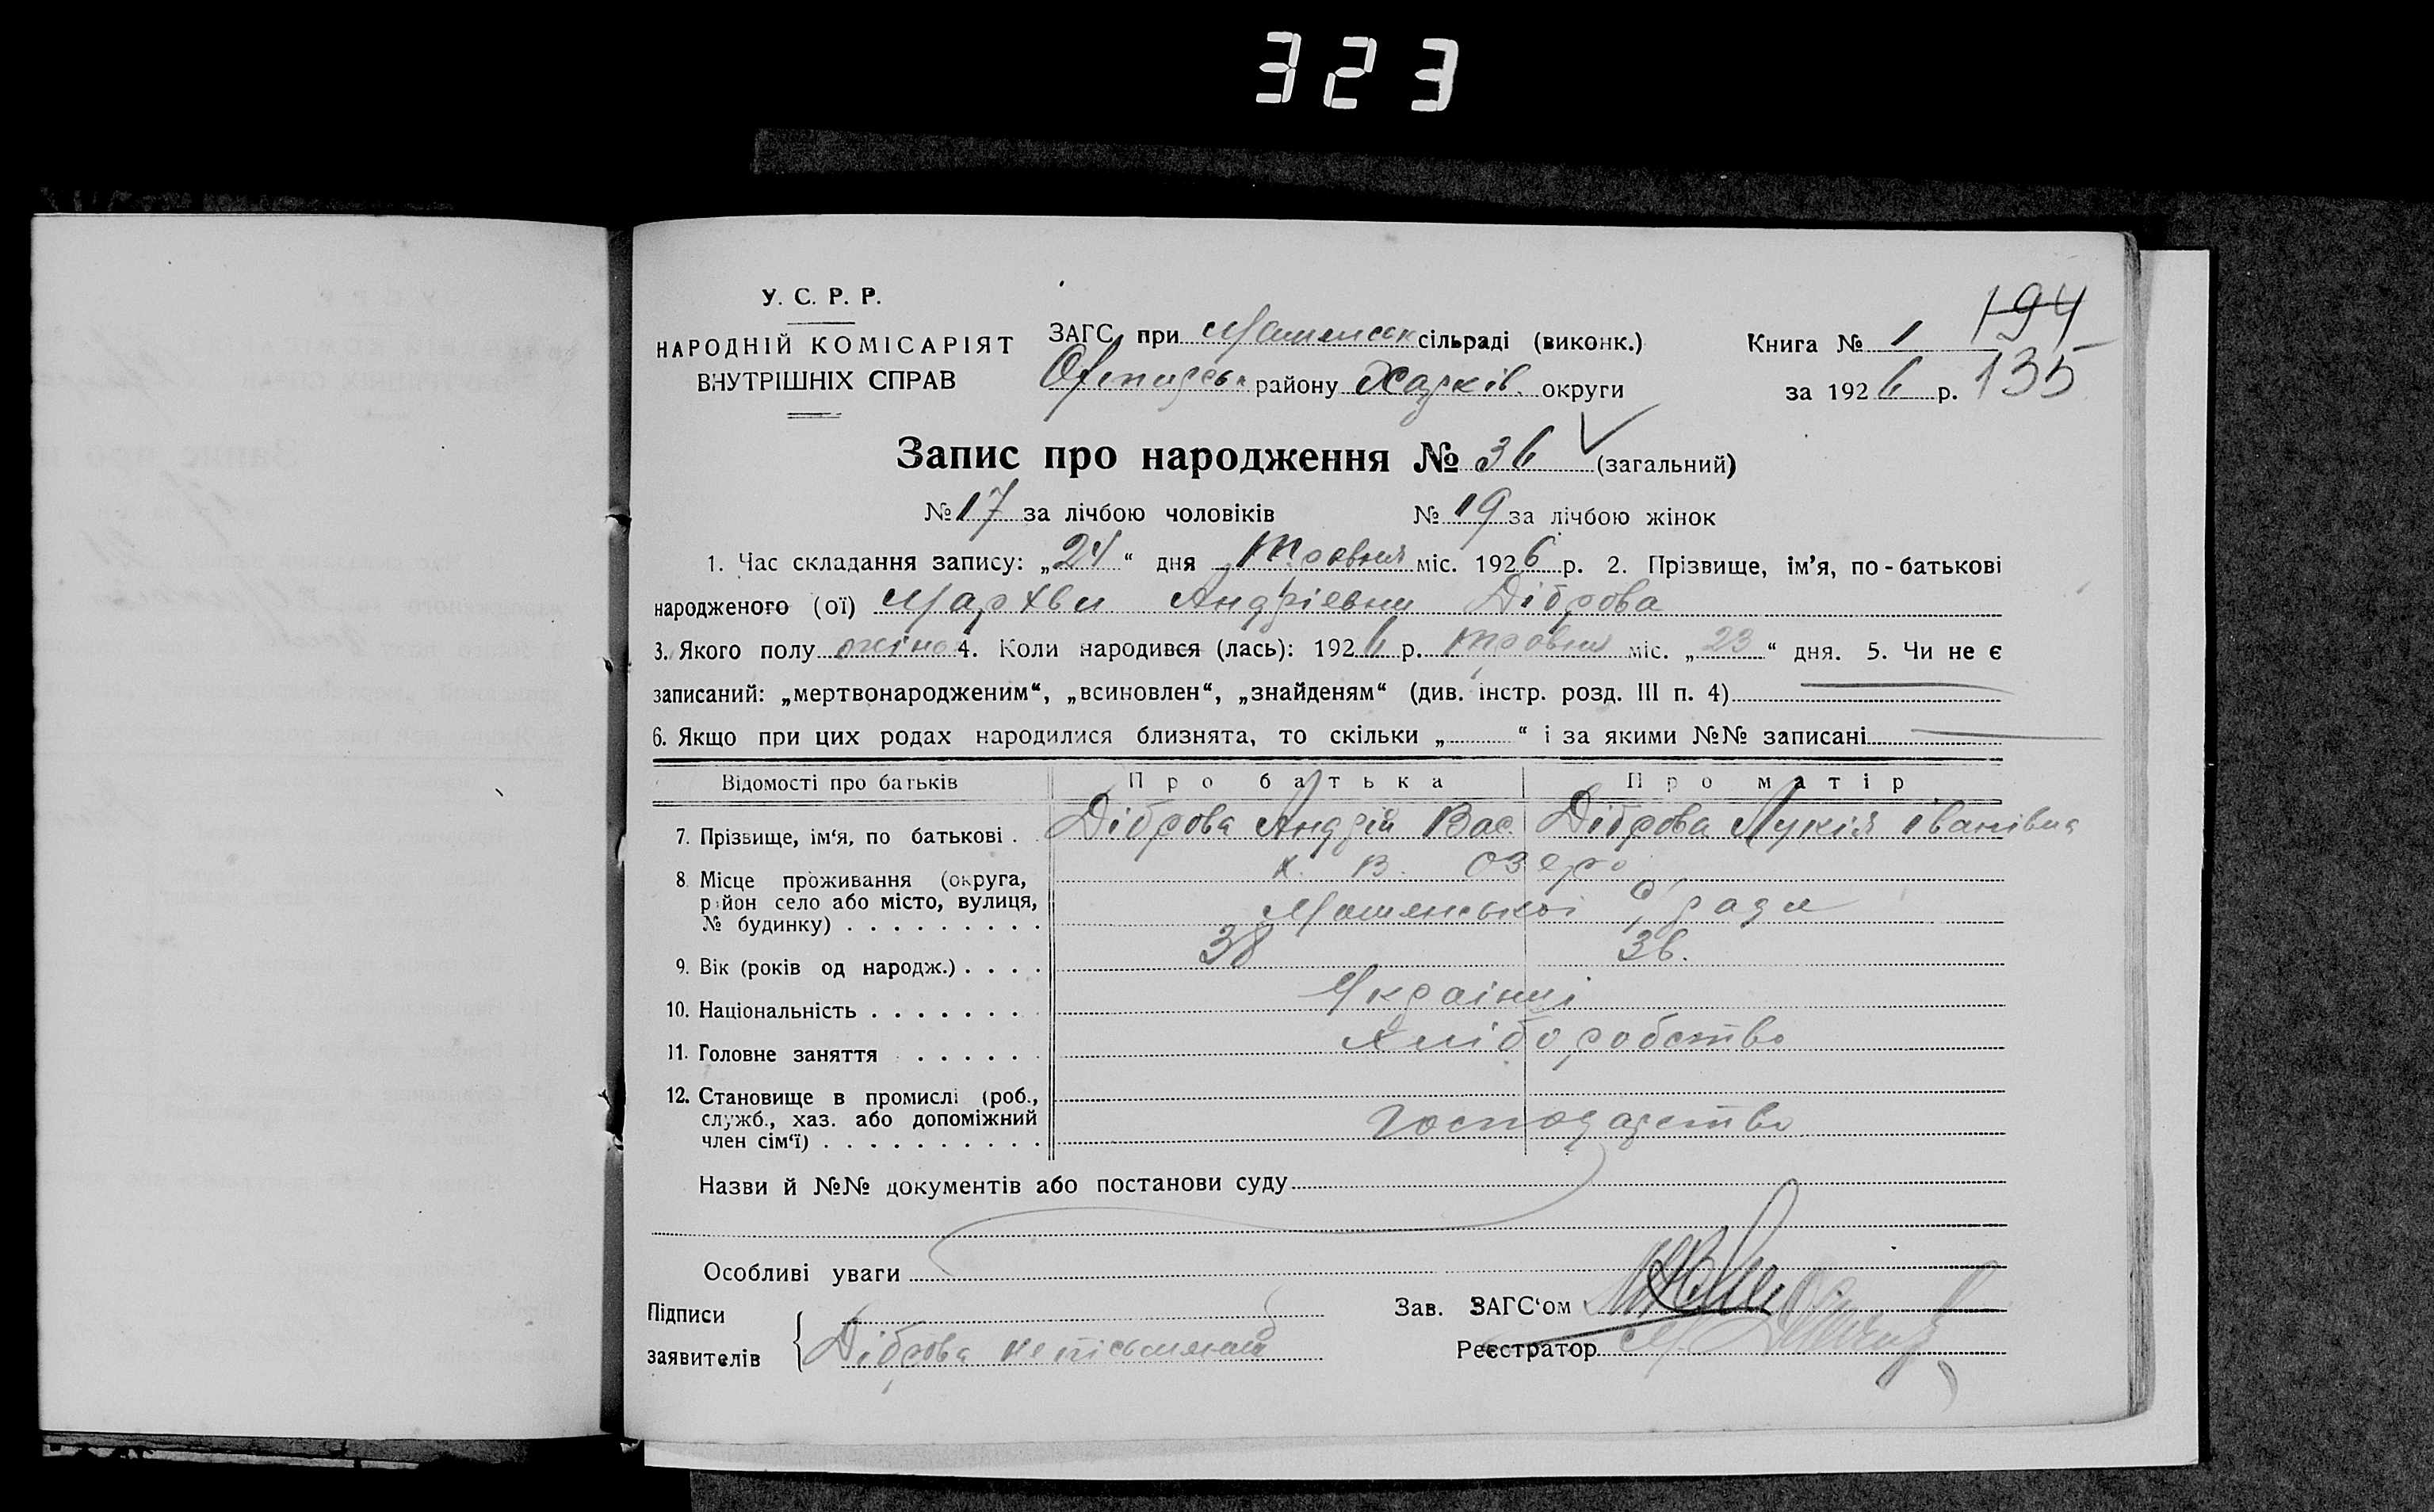 323
У. С. Р. Р.
НАРОДНІЙ КОМІСАРІЯТ
ВНУТРІШНІХ СПРАВ
ЗАГС при сільраді (виконк.)
району Харків. округи
Книга № 1
за 1926 р.
194
135
Запис про народження № 36 (загальний)
№ 17 за лічбою чоловіків № 19 за лічбою жінок
1. Час складання запису: „24“ дня травня міс. 1926 р. 2. Прізвище, ім’я, по-батькові
народженого (ої) Мархви Андріевни Діброва
3. Якого полу жіно 4. Коли народився (лась): 1926 р. травня міс. „23“ дня. 5. Чи не є
записаний: „мертвонародженим“, „всиновлен“, „знайденям“ (див. інстр. розд. III п. 4)
6. Якщо при цих родах народилися близнята, то скільки „ “ і за якими №№ записані
Відомості про батьків Про батька Про матір
7. Прізвище, ім‘я, по батькові . Діброва Андрій Вас. Діброва Лукія Іванівна
8. Місце проживання (округа, х. В. Озеро
район село або місто, вулиця,
№ будинку) . . . . . . . . . с/ ради
9. Вік (років од народж.) . . . . 38 36.
10. Національність . . . . . . . Українці
11. Головне заняття . . . . . . Хліборобство
12. Становище в промислі (роб.,
служб., хаз. або допоміжний
член сім‘ї) . . . . . . . . . . господарство
Назви й №№ документів або постанови суду
Особливі уваги
Підписи
заявителів Діброва
Зав. ЗАГС‘ом
Реєстратор